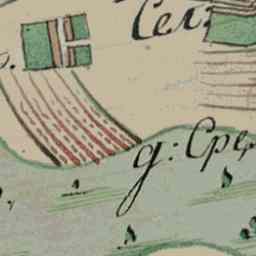 Сел
д: Сре